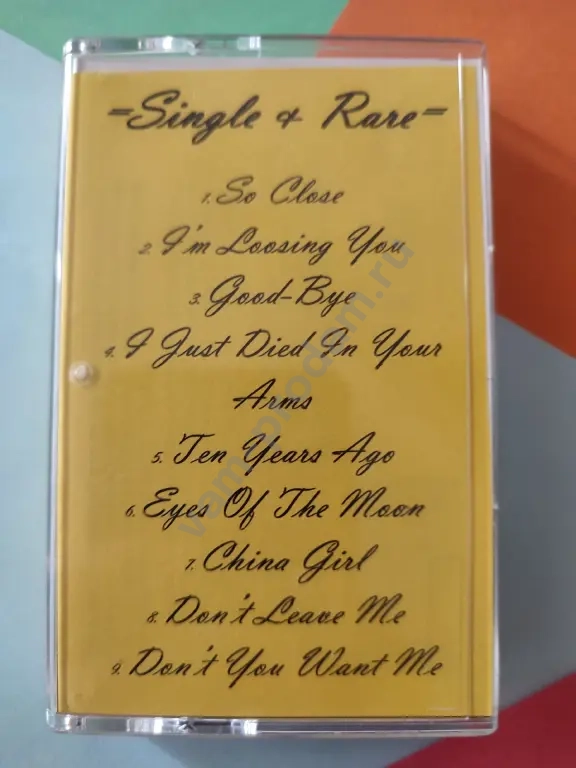 =Single & Rare=
1. So Close
2. I'm Loosing You
3. Good-Bye
4. I Just Died In Your
Arms
5. Ten Years Ago
6. Eyes Of The Moon
7. China Girl
8. Don't Leave Me
9. Don't You Want Me
vamprodam.ru